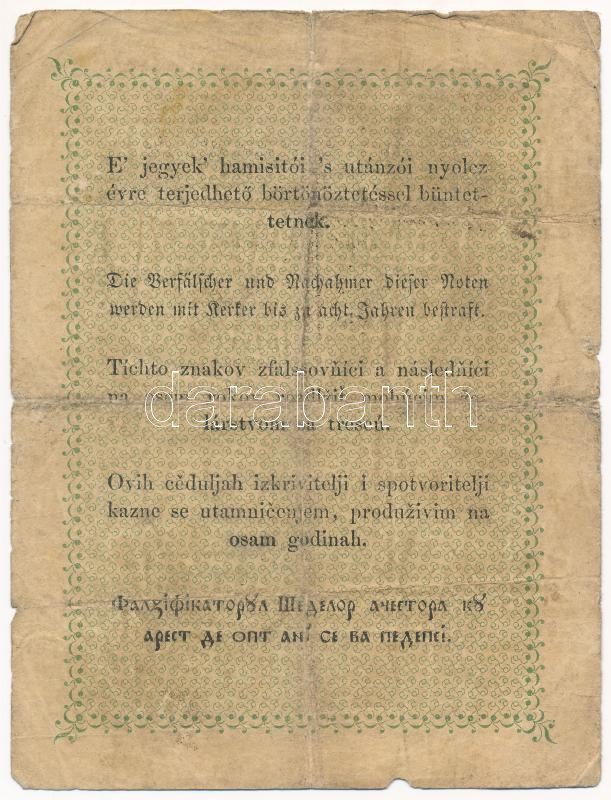 E' jegyek' hamisitói 's utánzói nyolcz
évre terjedhető börtönöztetéssel büntet-
tetnek.
Die Verfälscher und Nachahmer dieser Noten
werden mit Kerker bis zu acht Jahren bestraft.
Tíchto znakov zfalssovňíci a následňíci
na osem rokov
lárstvom sa trescú.
darabanth
Ovih cĕduljah izkrivitelji i spotvoritelji
kazne se utamničenjem, produživim na
osam godinah.
Фалзіфікаторꙋл Шеделор ачестора кꙋ
арест де опт ані се ва педепсі.